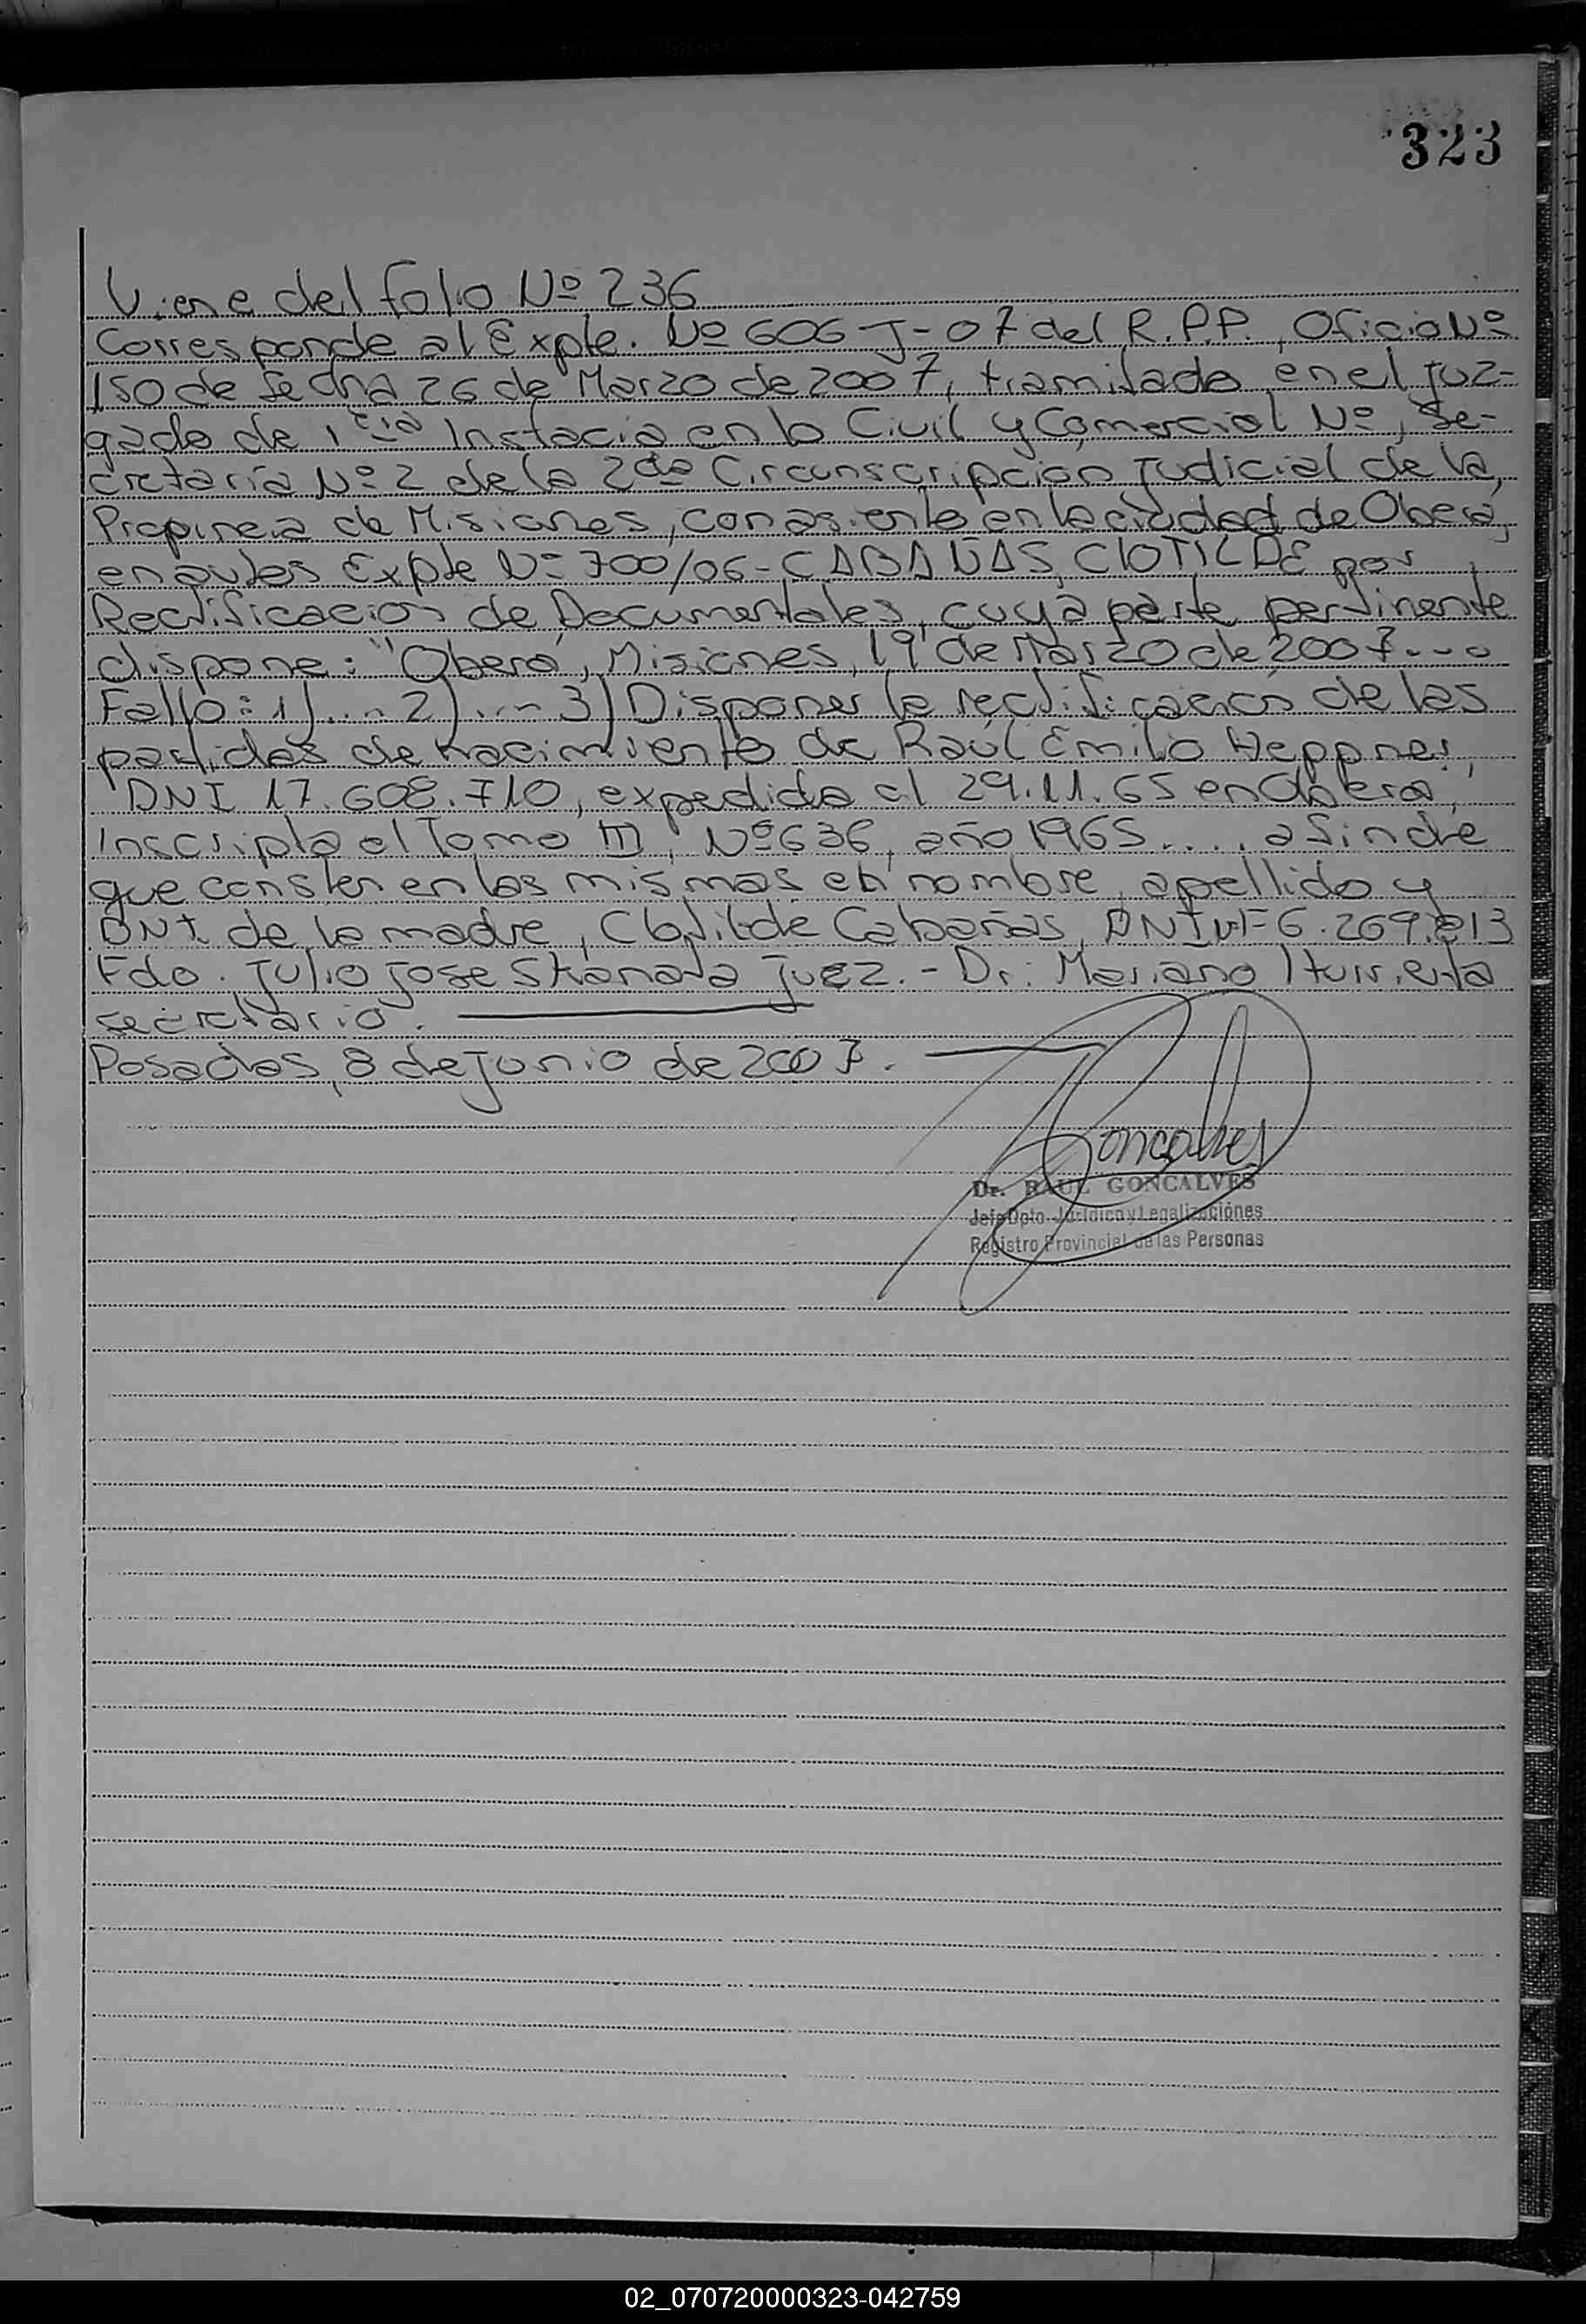 323
Viene del folio Nº 236
Corresponde al Expte. Nº 606-J-07 del R.P.P., Oficio Nº
150 de fecha 26 de Marzo de 2007, tramitado en el Juz-
gado de 1era Instacia en lo Civil y Comercial Nº, Se-
cretaría Nº 2 de la 2da Circunscripción Judicial de la
Provincia de Misiones, con asiento en la ciudad de Oberá,
en autos Expte Nº 700/06 - CABAÑAS, CLOTILDE por
Rectificación de Documentales, cuya parte pertinente
dispone: "Oberá, Misiones, 19 de Marzo de 2007....
Fallo: 1).... 2).... 3) Disponer la rectificación de las
partidas de nacimiento de Raúl Emilio Heppner,
DNI 17.608.710, expedida al 29.11.65 en Oberá,
Inscripta al Tomo III, Nº 636, año 1965..... a fin de
que consten en las mismas el nombre, apellido y
DNI de la madre, Clotilde Cabañas, DNI 6.269.813
Fdo. Julio Jose Skanata Juez.- Dr: Mariano Iturrieta
secretario.
Posadas, 8 de Junio de 2007.
Goncalves
Dr. RAUL GONCALVES
Jefe Dpto. Jurídico y Legalizaciónes
Registro Provincial de las Personas
02_070720000323-042759